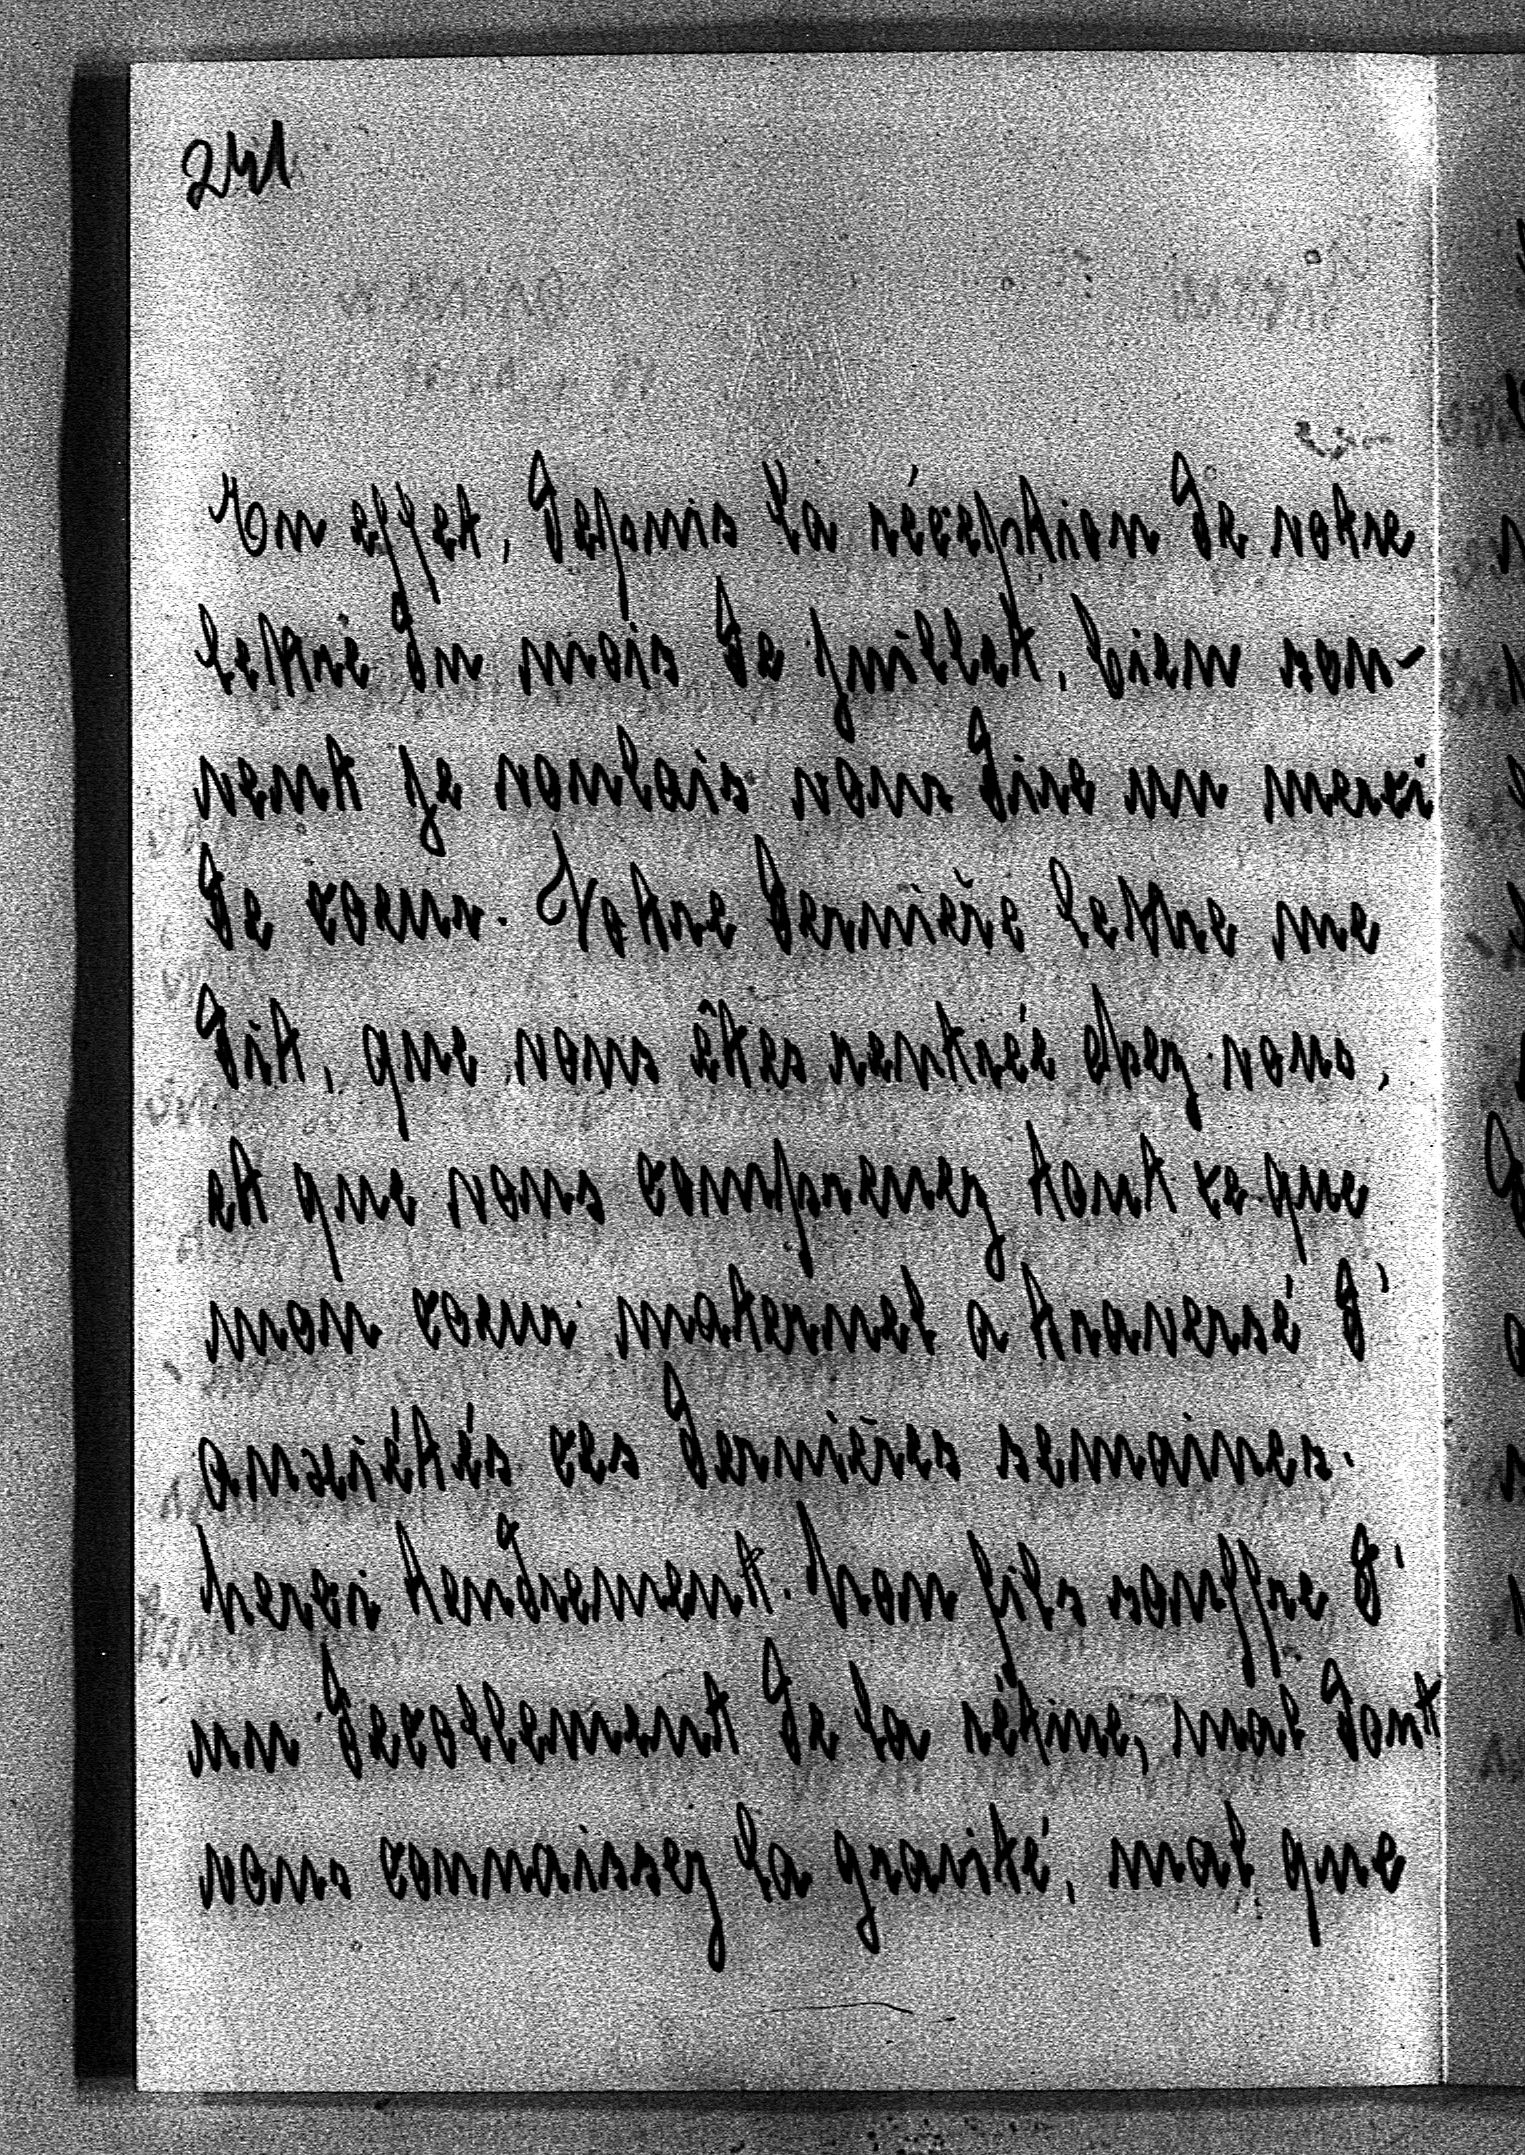 241
En effet, depuis la réception de votre
lettre du mois de juillet, bien sou-
vent je voulais vous dire un merci
de coeur. Votre dernière lettre me
dit, que vous êtes rentrée chez vous,
et que vous comprenez tout ce que
mon coeur maternel a traversé d'
anxiétés ces dernières semaines.
Merci tendrement. Mon fils souffre d'
un decollement de la rétine, mal dont
vous connaissez la gravité, mal que